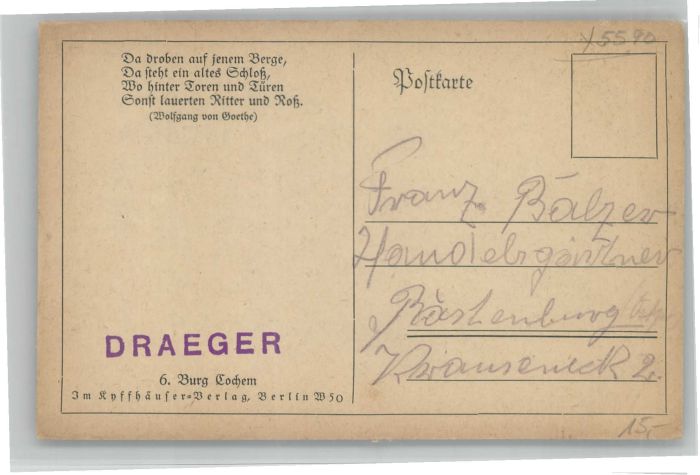 Da droben auf jenem Berge,
Da steht ein altes Schloß,
Wo hinter Toren und Türen
Sonst lauerten Ritter und Roß.
(Wolfgang von Goethe)
DRAEGER
6. Burg Cochem
Im Kyffhäuser-Verlag, Berlin W50
Y5590
Postkarte
Franz Bälzer
Handelsgärtner
Rastenburg
Krauseneck 2.
15,-